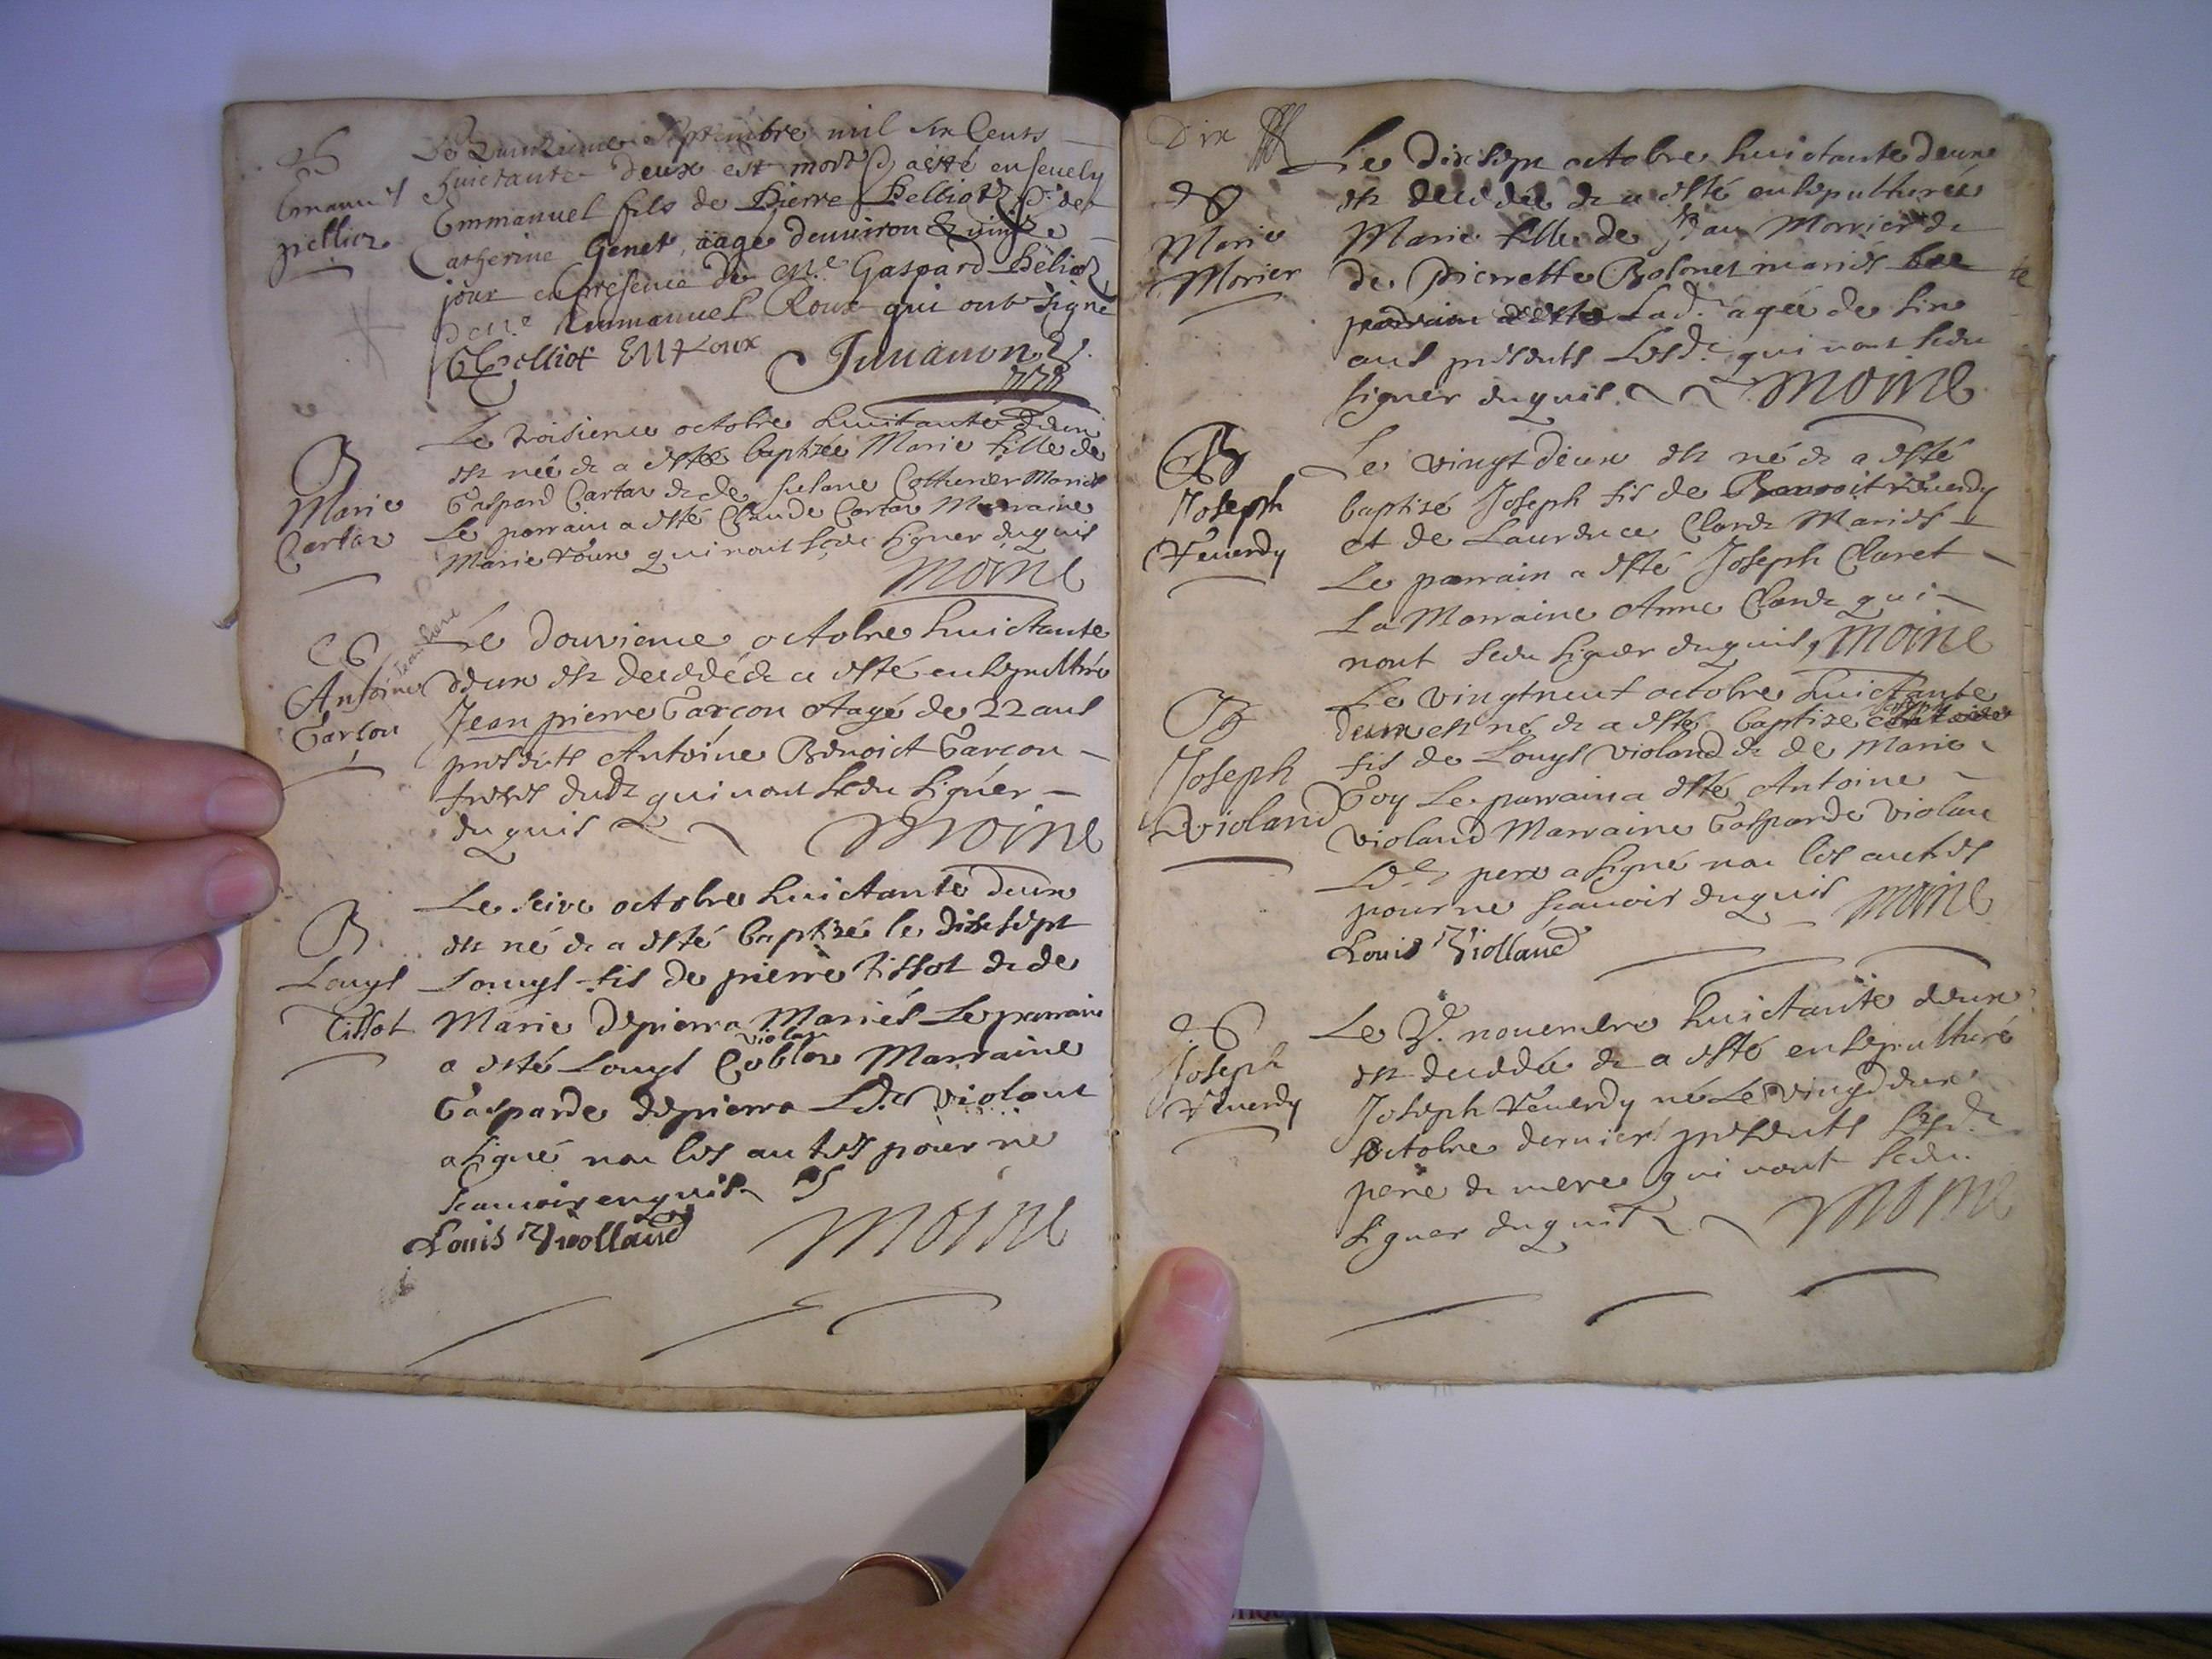 Emanuel
pellioz
Le quinzieme septembre mil six Cents
huictante deux est mort & a esté enseuely
Emmanuel fils de Pierre Pellioz & de
Catherine Genet, aagé denuiron quinze
jour en presence de Me Gaspard Pelioz
Emmanuel Roux qui ont signé
GPelliot EM Roux
B
Marie
Cartaz
Le troisieme octobre huictante deux
est née & a esté baptisée Marie fille de
Gaspard Cartaz & de Mariés
Le parrain a esté Claude Cartaz Marraine
Marie qui nont sceu signer enquis
Moine
Antoine
Garcon
Le douzieme octobre huictante
deux est decedé & a esté ensepulturé
Jean pierre Garcon Aagé de 22 ans
presents Antoine Benoict Garcon
freres dudt qui nont sceu signer
enquis Moine
B
Louys
Tissot
Le seize octobre huictante deux
est né & a esté baptisé le dixsept
Louys fis de pierre Tissot & de
Marie depierra Mariés Le parrain
violan
a esté Louys Marraine
Gasparde depierra Ledt violant
a signé non les autres pour ne
scauoir enquis
Louis Violland Moine
Dix
Marie
Morier
Le dixsept octobre huictante deux
est decedée & a esté ensepulturée
Marie fille de Jean Morrier &
de Pierrette mariés
parrain a esté Lade agée de six
ans presents Lesd. qui nont sceu
signer enquis. Moine
B
Joseph
Veuerdy
Le vingt deux est né & a esté
baptisé Joseph fis de Benoit Veuerdy
et de Laurence Claret Mariés
Le parrain a esté Joseph Claret
La Marraine Anne Claret qui
nont sceu signer enquis, Moine
B
Joseph
Violand
Le vingtneuf octobre huictante
joseph
deux est né & a esté baptise
fis de Louys violand & de Marie
Goy Le parrain a esté Antoine
violand Marraine Gasparde violan
Led. pere a signé non les autres
pour ne scauoir enquis Moine
Louis Violland
Joseph
Veuerdy
Le nouembre huictante deux
est decedé & a esté ensepulturé
Joseph Veuerdy né Le vingt deux
octobre dernier presents Lesd.
pere & mere qui nont sceu
signer enquis Moine